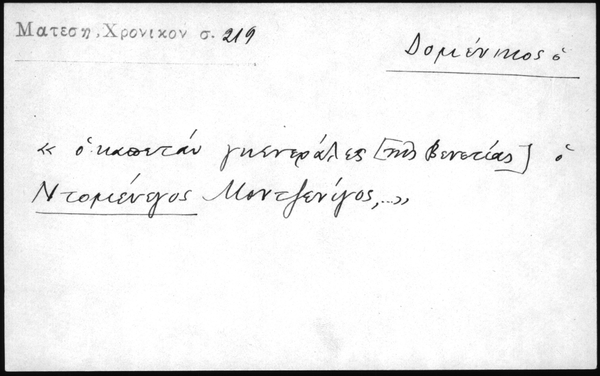 Ματεση, Χρονικον σ. 219
Δομένικος ὁ
« ὁ καπετάν γκενεράλες [τῆς Βενετίας] ὁ
Ντομένεγος Μοντζενίγος,...»